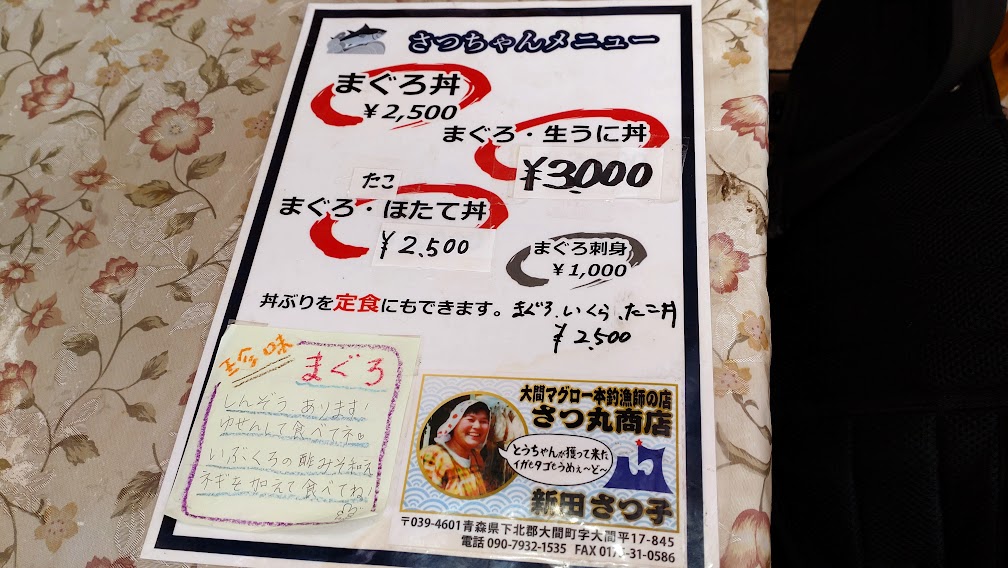 さつちゃんメニュー
まぐろ丼
¥2,500
まぐろ・生うに丼
¥3,000
たこ
まぐろ・ほたて丼
¥2,500
まぐろ刺身
¥1,000
丼ぶりを定食にもできます。
まぐろ、いくら、たこ丼
¥2,500
珍味
まぐろ
しんぞうあります!
ゆせんして食べてネ。
いぶくろの酢みそ和え
ネギを加えて食べてね!
大間マグロ一本釣漁師の店
さつ丸商店
とうちゃんが獲って来た
イガとタゴとうめぇ~ど~
新田 さつ子
〒039-4601青森県下北郡大間町字大間平17-845
電話 090-7932-1535 FAX 0175-31-0586